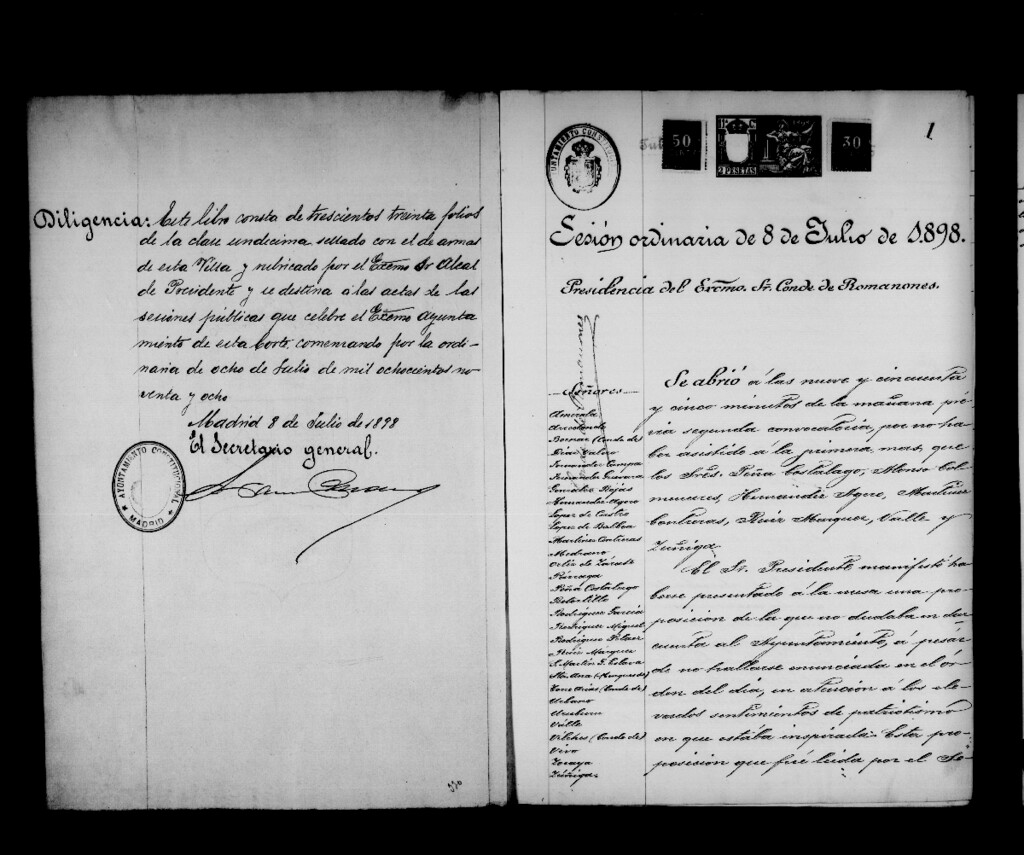 Diligencia: Este libro consta de trescientos treinta folios
de la clase undecima sellado con el de armas
de esta Villa y rubricado por el Excmo Sr Alcal
de Presidente y se destina á las actas de las
sesiones públicas que celebre el Excmo Ayunta
miento de esta Corte, comenzando por la ordi-
naria de ocho de Julio de mil ochocientos no-
venta y ocho
Madrid 8 de Julio de 1898
El Secretario general.
AYUNTAMIENTO CONSTITUCIONAL
MADRID
330
AYUNTAMIENTO CONSTITUCIONAL
50
2 PESETAS
30
1
Sesión ordinaria de 8 de Julio de 1.898.
Presidencia del Excmo. Sr. Conde de Romanones.
Romanones
Señores
Bernar (Conde de)
Diaz Valero
Fernandez Campa
Fernandez Guevara
Gonzalez Rojas
Hernandez Agero
Lopez de Castro
Lopez de Balboa
Martinez Contreras
Medrano
Ortiz de Zárate
Párraga
Peña Costalago
Rodriguez Garcia
Rodriguez Miguel
Rodriguez Pelaez
Ruiz Márquez
S. Martin
Sta. Ana (Marqués de)
Urbano
Valle
Vilches (Conde de)
Vivo
Zozaya
Zúñiga.
Se abrió á las nueve y cincuenta
y cinco minutos de la mañana pré-
via segunda convocatoria, por no ha-
ber asistido á la primera mas que
los Sres. Peña Costalago, Alonso Col-
menares, Hernandez Agero, Martinez
Contreras, Ruiz Marquez, Valle y
Zuñiga.
El Sr. Presidente manifestó ha-
berse presentado á la mesa una pro-
posicion de la que no dudaba en dar
cuenta al Ayuntamiento, á pesar
de no hallarse enunciada en el ór-
den del dia, en atencion á los ele-
vados sentimientos de patriotismo
en que estaba inspirada. Esta pro-
posicion que fué leida por el Se-